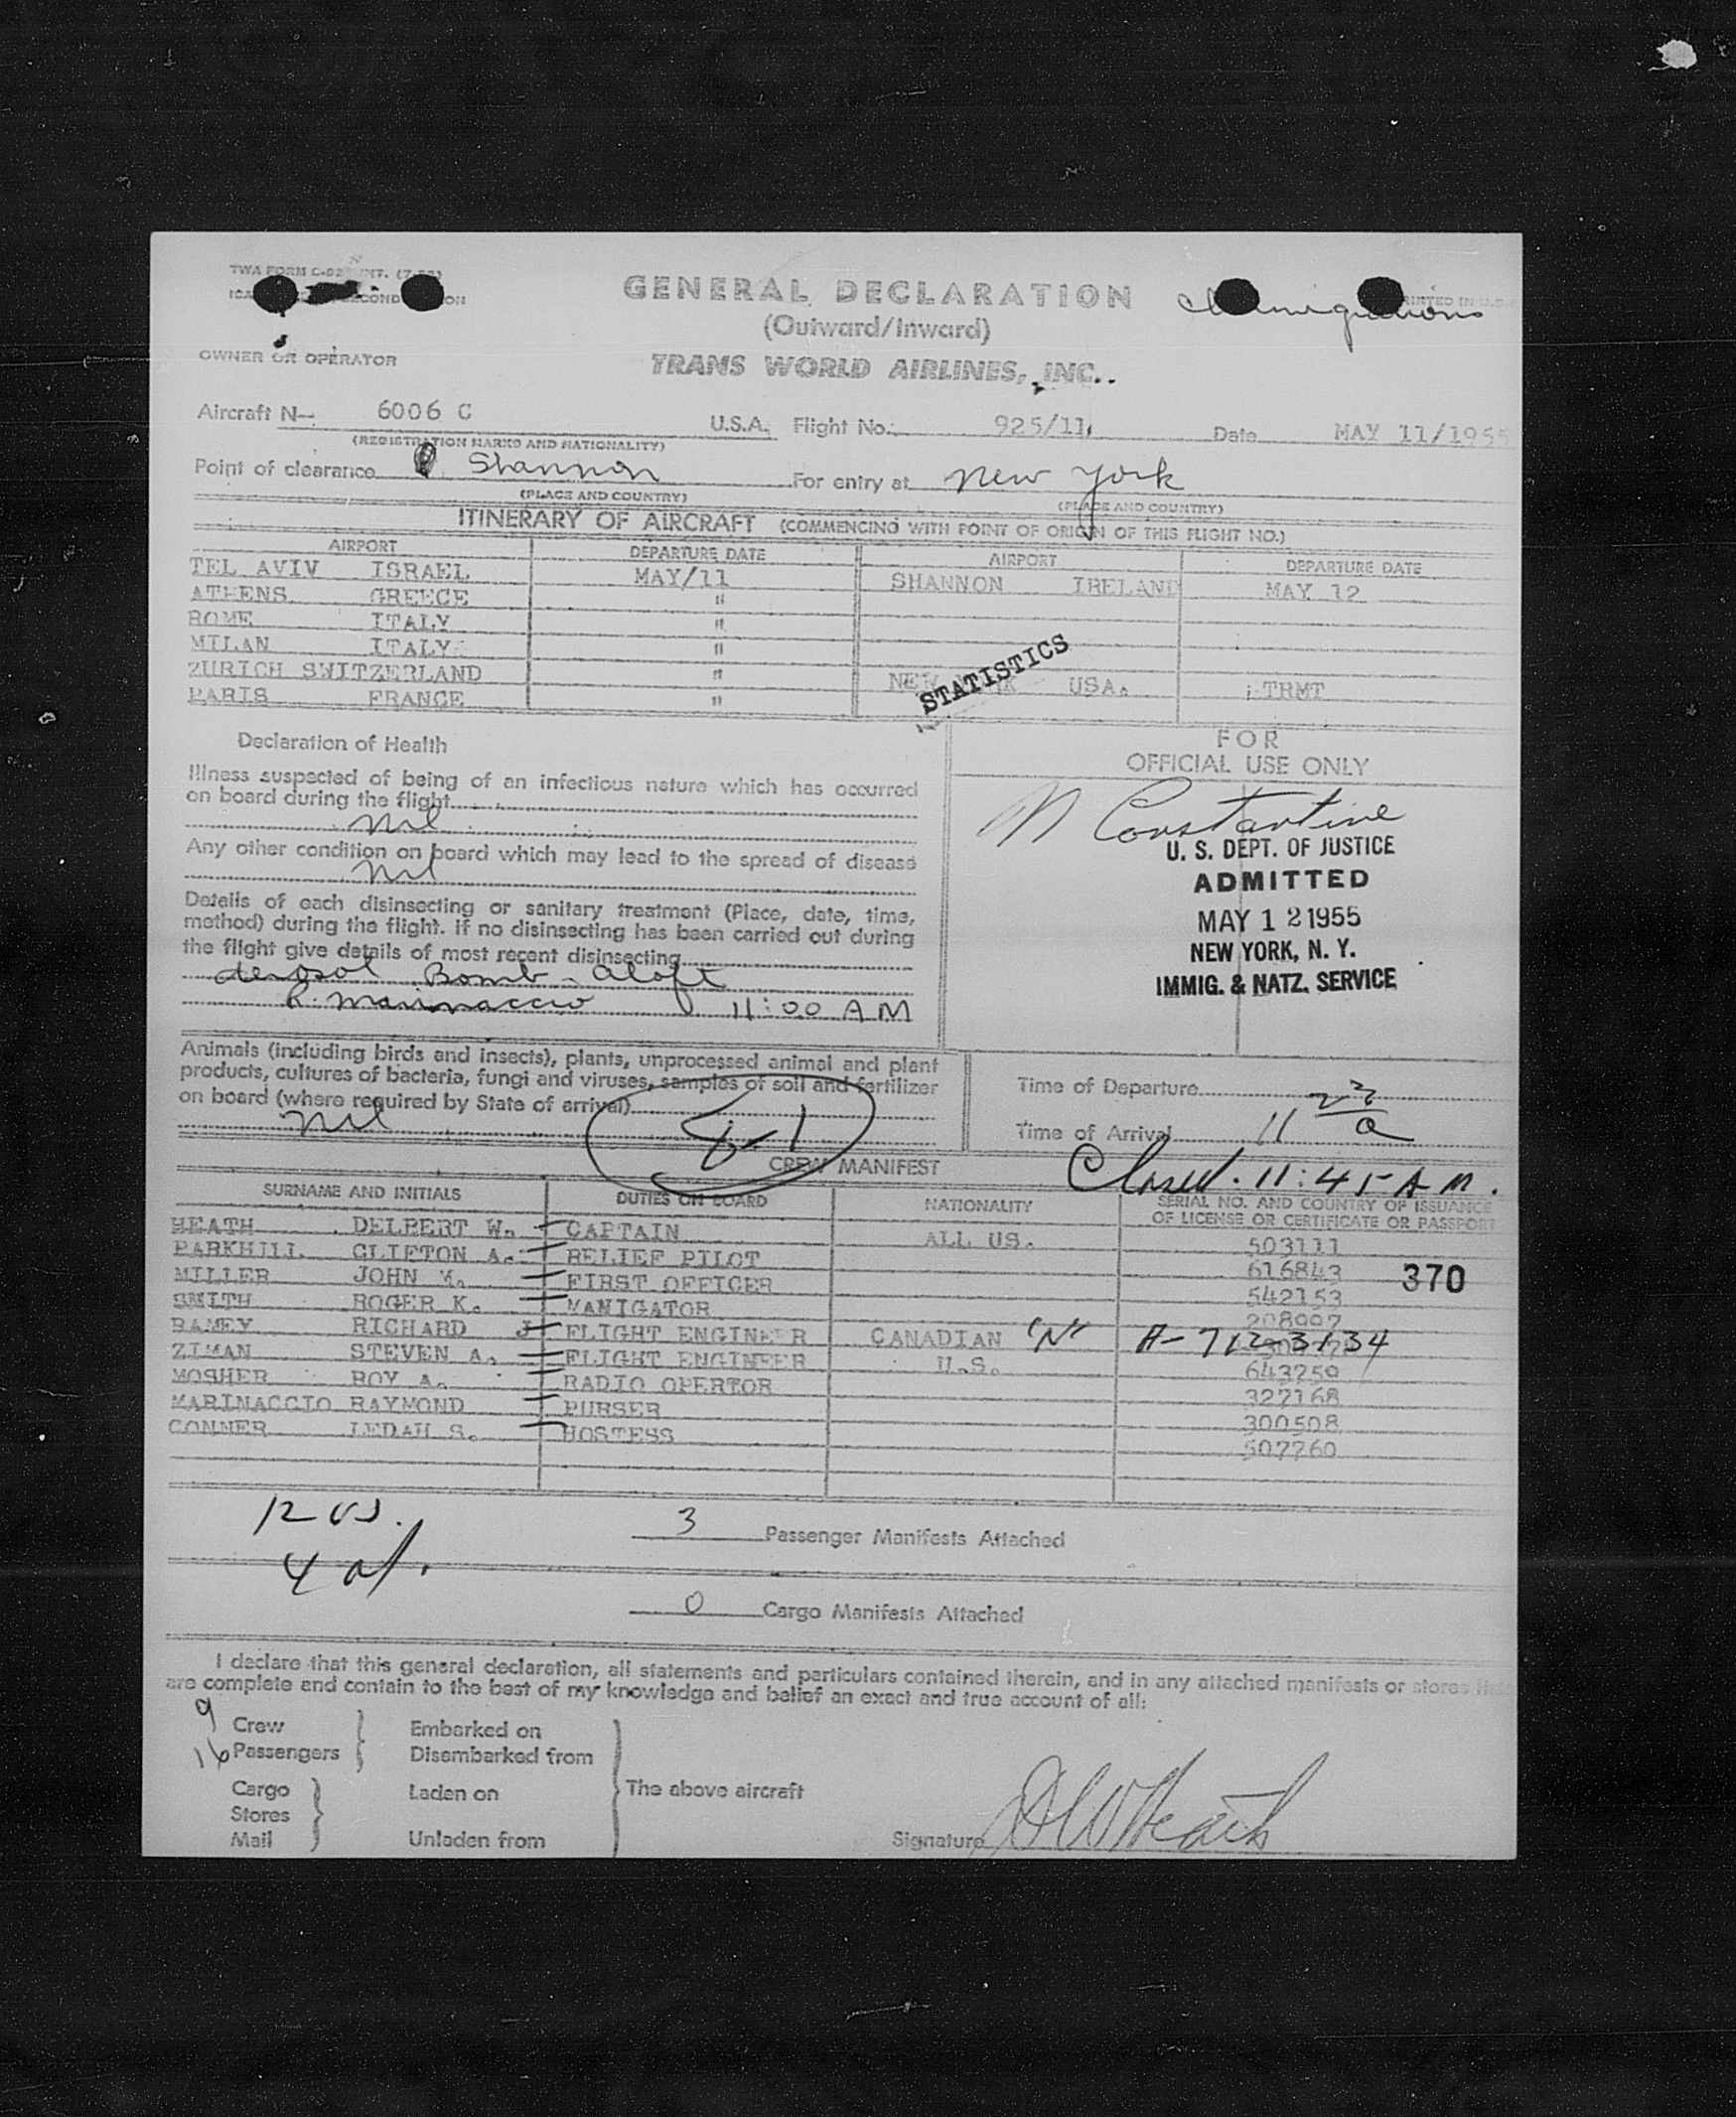 TWA FORM
GENERAL DECLARATION
(Outward/Inward)
OWNER OR OPERATOR
TRANS WORLD AIRLINES, INC.
Aircraft N- 6006 C U.S.A. Flight No. 925/11 Date MAY 11/1955
(REGISTRATION MARKS AND NATIONALITY)
Point of clearance Shannon For entry at New York
(PLACE AND COUNTRY) (PLACE AND COUNTRY)
ITINERARY OF AIRCRAFT (COMMENCING WITH POINT OF ORIGIN OF THIS FLIGHT NO.)
AIRPORT DEPARTURE DATE AIRPORT DEPARTURE DATE
TEL AVIV ISRAEL MAY/11 SHANNON IRELAND MAY 12
ATHENS GREECE "
ROME ITALY "
MILAN ITALY "
ZURICH SWITZERLAND "
PARIS FRANCE " NEW USA. TRMT
STATISTICS
Declaration of Health
Illness suspected of being of an infectious nature which has occurred
on board during the flight
Nil
Any other condition on board which may lead to the spread of disease
Nil
Details of each disinsecting or sanitary treatment (Place, date, time,
method) during the flight. If no disinsecting has been carried out during
the flight give details of most recent disinsecting
Aerosol Bomb - aloft
R. Marinaccio 11:00 AM
FOR
OFFICIAL USE ONLY
M Constantine
U. S. DEPT. OF JUSTICE
ADMITTED
MAY 12 1955
NEW YORK, N. Y.
IMMIG. & NATZ. SERVICE
Animals (including birds and insects), plants, unprocessed animal and plant
products, cultures of bacteria, fungi and viruses, samples of soil and fertilizer
on board (where required by State of arrival)
Nil
Time of Departure
Time of Arrival 11
CREW MANIFEST
Closed. 11:45 AM.
SURNAME AND INITIALS DUTIES ON BOARD NATIONALITY SERIAL NO. AND COUNTRY OF ISSUANCE
OF LICENSE OR CERTIFICATE OR PASSPORT
HEATH DELBERT W. CAPTAIN ALL US. 503111
PARKHILL CLIFTON A. RELIEF PILOT 616843
370
MILLER JOHN FIRST OFFICER 542153
SMITH ROGER K. NANIGATOR 208997
RAMEY RICHARD J FLIGHT ENGINEER CANADIAN "N" A-7123134
ZIMAN STEVEN A. FLIGHT ENGINEER U.S. 643259
MOSHER ROY A. RADIO OPERTOR 327168
MARINACCIO RAYMOND PURSER 300508
CONNER LEDAH S. HOSTESS 507760
12 US.
3 Passenger Manifests Attached
4 al.
0 Cargo Manifests Attached
I declare that this general declaration, all statements and particulars contained therein, and in any attached manifests or stores
are complete and contain to the best of my knowledge and belief an exact and true account of all:
9 Crew Embarked on
16 Passengers Disembarked from
Cargo Laden on The above aircraft
Stores
Mail Unladen from
Signature DW Heath